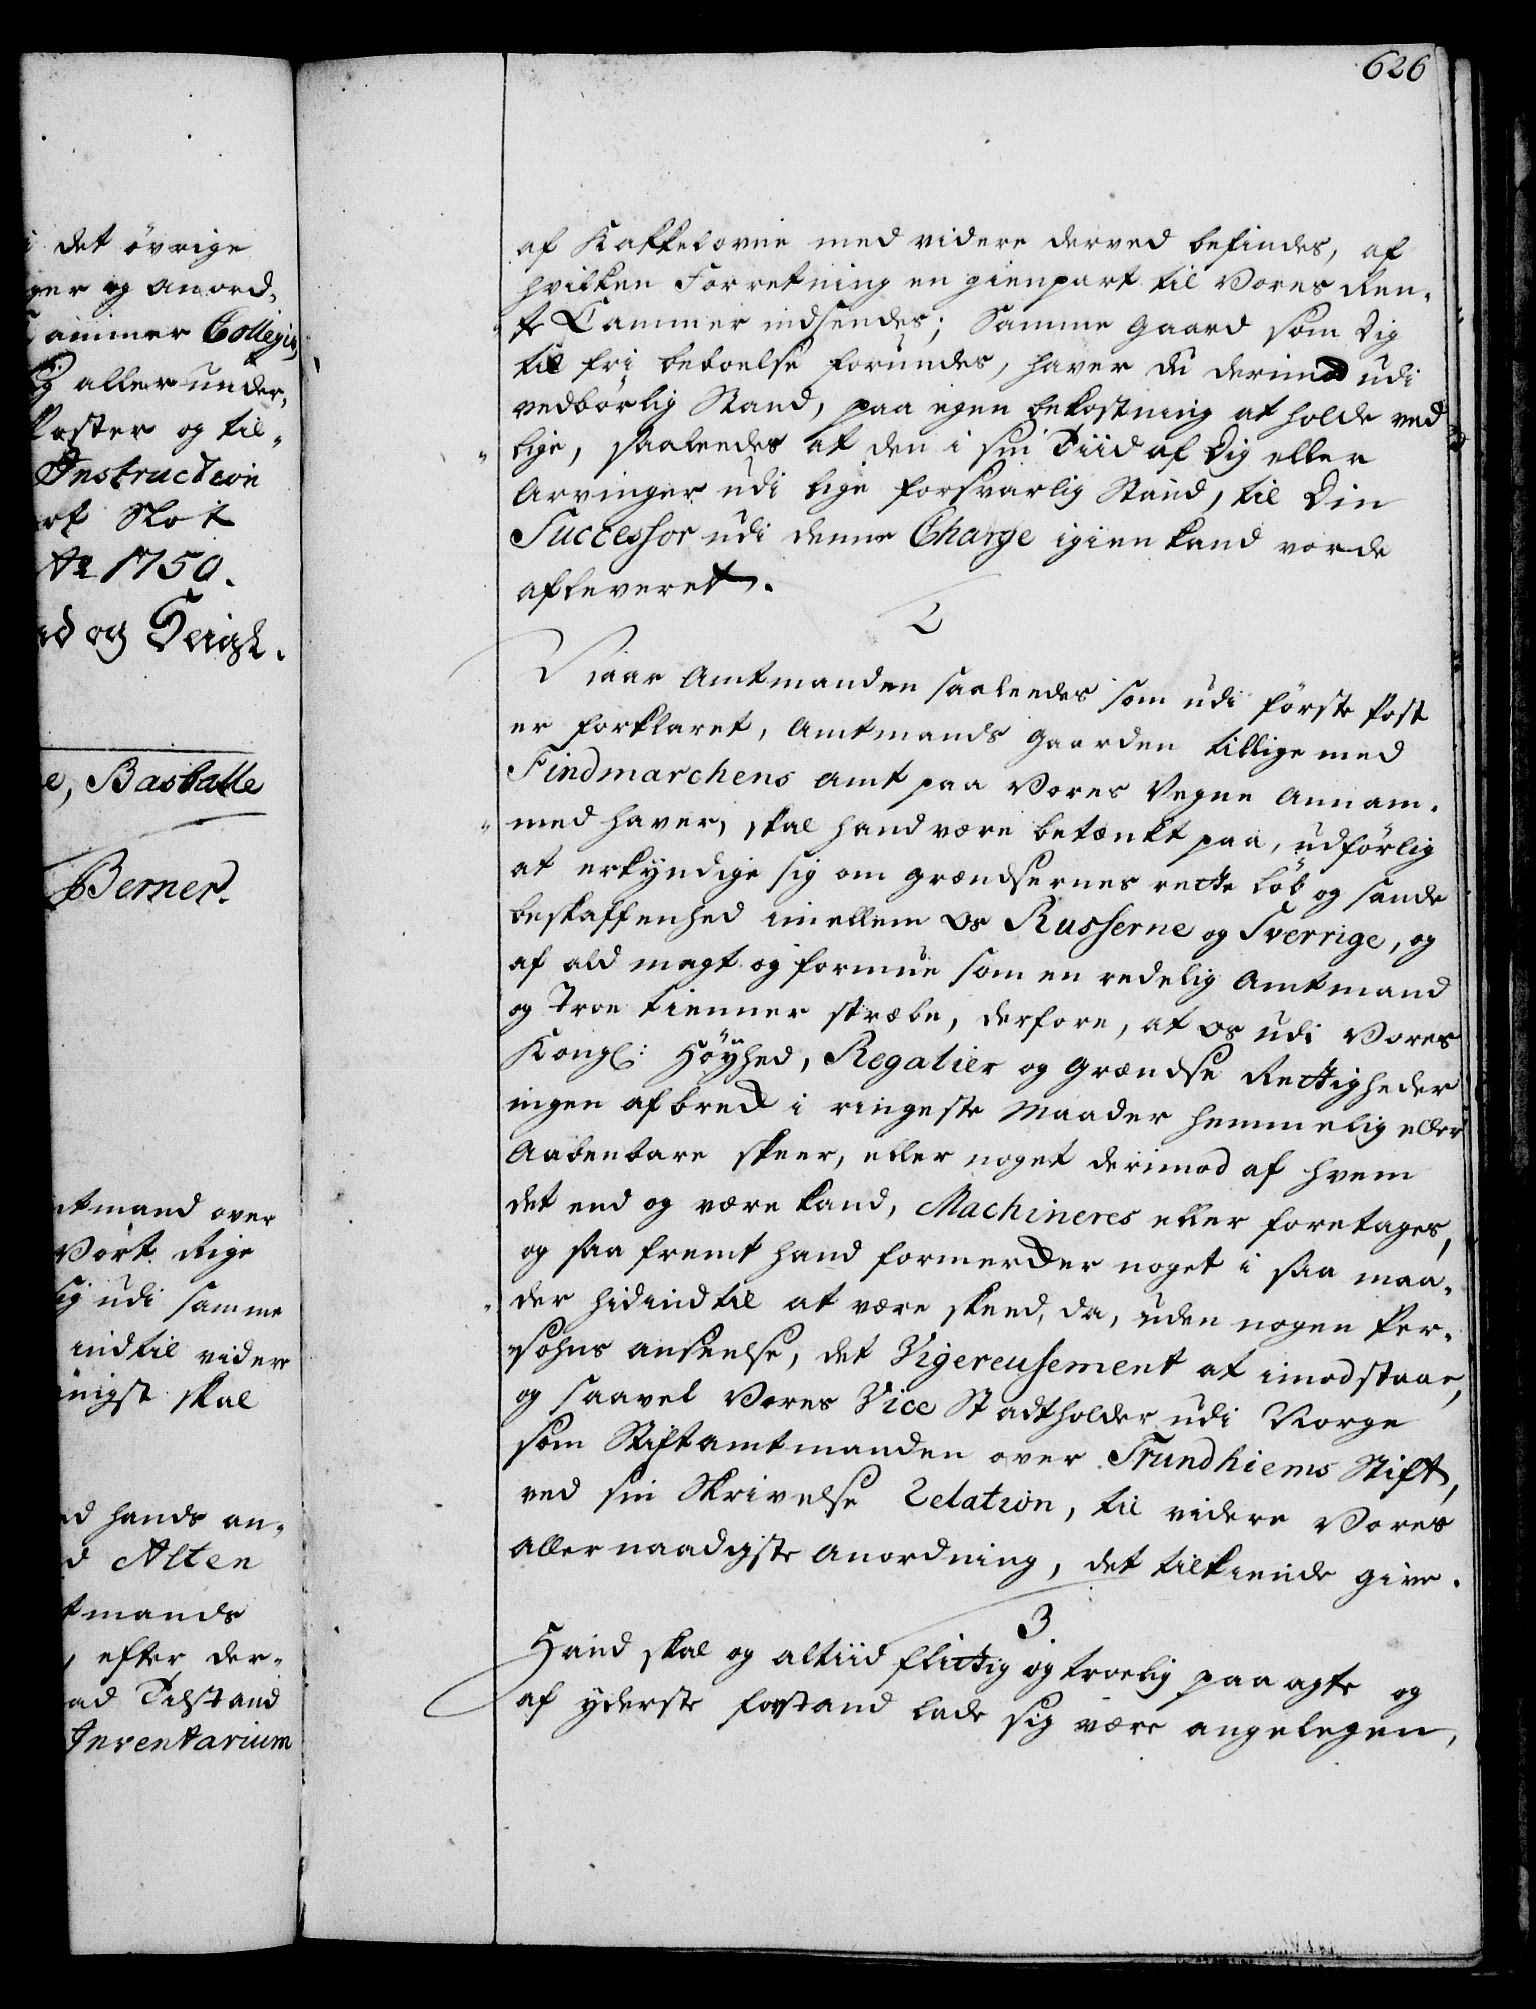 626
i det övrige
ger og anord„
Cammer Collegii
Dig aller under„
Poster og til„
Instruction
ort Slot
Ao 1750.
nd og Seigl.
e, Basballe
Berner.
mtmand over
Vort Rige
sig udi samme
indtil videre
nigst skal
ed hands an„
d Alten
tmands
, efter der„
ad Tilstand
Inventarium
af Kakkelovne med videre derved befindes, af
hvilken Forretning en gienpart til Vores Ren„
„te Cammer indsendes; Samme Gaard som Dig
til fri beboelse forundes, haver du derimod udi
vedbörlig Stand, paa egen bekostning at holde ved
„lige, saaleedes at den i sin Tiid af Dig eller
Arvinger udi lige forsvarlig Stand, til Din
Successor udi denne Charge igien kand vorde
afleveret.
2
Naar Amtmanden saaleedes som udi förste Post
er forklaret, Amtmands Gaarden tillige med
Findmarchens Amt paa Vores Vegne Annam„
„med haver, skal hand være betænkt paa, udförlig
at erkyndige sig om grændsernes rette löb og sande
beskaffenhed imellem os Russerne og Sverrige, og
af ald magt og formue som en redelig Amtmand
og Troe tienner stræbe, derfore, at os udi Vores
Kongl: Höyhed, Regalier og Grændse Rettigheder
ingen afbræk i ringeste Maader hemmelig eller
Aabenbare skeer, eller noget derimod af hvem
det end og være kand, Machineres eller foretages,
og saa fremt hand formerker noget i saa maa„
„der hidindtil at være skeed, da, uden nogen Per„
„sohns anseelse, det Vigereusement at imodstaae,
og saavel Vores Vice Stadtholder udi Norge
som Stiftamtmanden over Trundhiems Stift,
ved sin Skrivelse Relation, til videre Vores
allernaadigste Anordning, det tilkiende give.
3
Hand skal og altiid flittig og troelig paa agte og
af yderste forstand lade sig være angelegen,